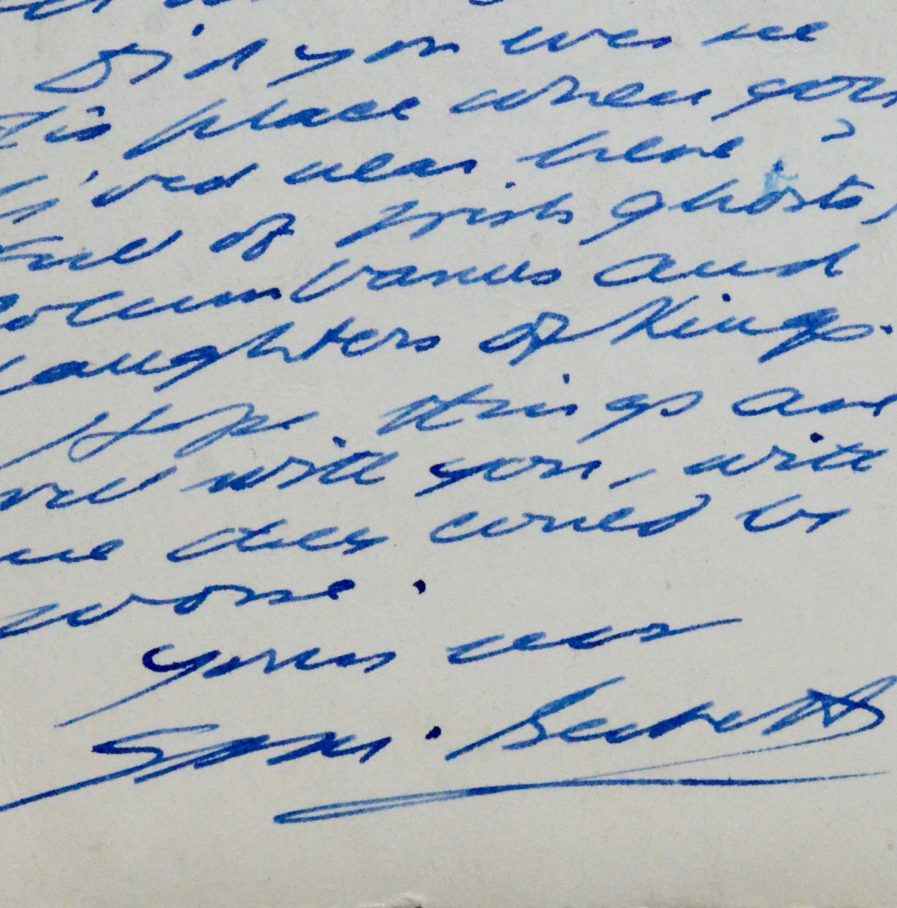 Did you ever see
this place when you
lived near here?
Full of Irish ghosts,
Columbanus and
daughters of Kings.
Hope things are
well with you, with
me they could be
worse.
Yours ever
Sam. Beckett